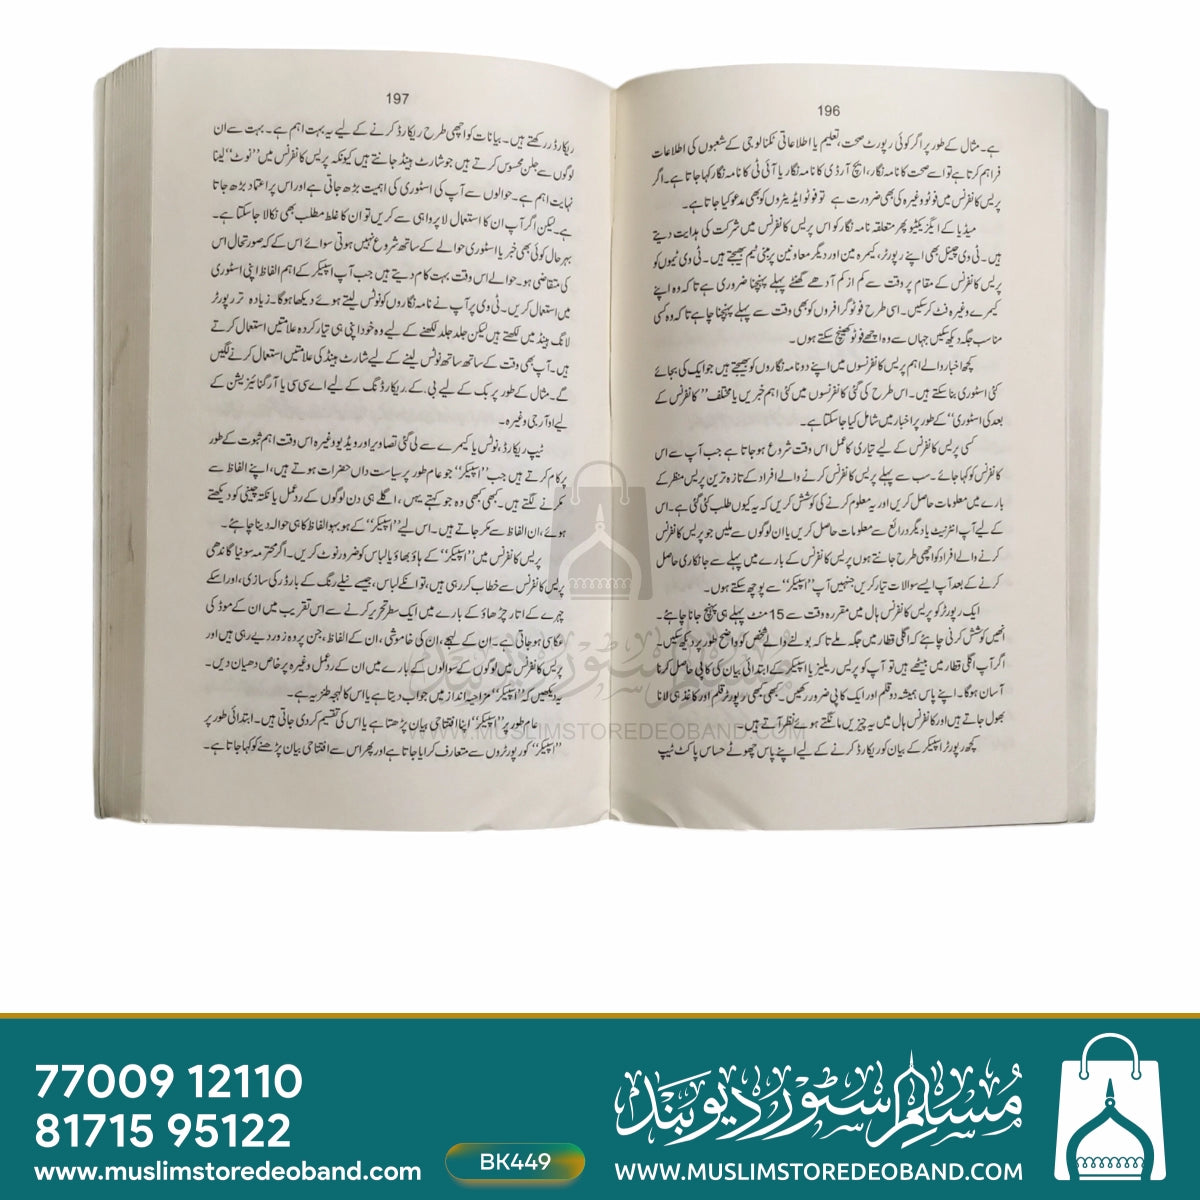 196
ہے۔ مثال کے طور پر اگر کوئی رپورٹ صحت، تعلیم یا اطلاعاتی ٹکنالوجی کے شعبوں کی اطلاعات
فراہم کرتا ہے تو اسے صحت کا نامہ نگار، ایچ آر ڈی کا نامہ نگار یا آئی ٹی کا نامہ نگار کہا جاتا ہے۔ اگر
پریس کانفرنس میں فوٹو وغیرہ کی بھی ضرورت ہے تو فوٹو ایڈیٹروں کو بھی مدعو کیا جاتا ہے۔
میڈیا کے ایگزیکٹیو پھر متعلقہ نامہ نگار کو اس پریس کانفرنس میں شرکت کی ہدایت دیتے
ہیں۔ ٹی وی چینل بھی اپنے رپورٹر، کیمرہ مین اور دیگر معاونین پر مبنی ٹیم بھیجتے ہیں۔ ٹی وی ٹیموں کو
پریس کانفرنس کے مقام پر وقت سے کم از کم آدھے گھنٹے پہلے پہنچنا ضروری ہے تاکہ وہ اپنے
کیمرے وغیرہ فٹ کر سکیں۔ اسی طرح فوٹو گرافروں کو بھی وقت سے پہلے پہنچنا چاہئے تاکہ وہ کسی
مناسب جگہ دیکھ سکیں جہاں سے وہ اچھے فوٹو کھینچ سکتے ہوں۔
کچھ اخبار والے اہم پریس کانفرنسوں میں اپنے دو نامہ نگاروں کو بھیجتے ہیں جو ایک کی بجائے
کئی اسٹوری بنا سکتے ہیں۔ اس طرح کی گئی کانفرنسوں میں کئی اہم خبریں یا مختلف ”کانفرنس کے
بعد کی اسٹوری“ کے طور پر اخبار میں شامل کیا جا سکتا ہے۔
کسی پریس کانفرنس کے لیے تیاری کا عمل اس وقت شروع ہو جاتا ہے جب آپ سے اس
کانفرنس کو کہا جائے۔ سب سے پہلے پریس کانفرنس کرنے والے افراد کے تازہ ترین پریس منظر کے
بارے میں معلومات حاصل کریں اور یہ معلوم کرنے کی کوشش کریں کہ یہ کیوں طلب کئی گئی ہے۔ اس
کے لیے آپ انٹرنیٹ یا دیگر درائع سے معلومات حاصل کریں یا ان لوگوں سے ملیں جو پریس کانفرنس
کرنے والے افراد کو اچھی طرح جانتے ہوں پریس کانفرنس کے بارے میں پہلے سے جانکاری حاصل
کرنے کے بعد آپ ایسے سوالات تیار کریں جنہیں آپ ”اسپیکر“ سے پوچھ سکتے ہوں۔
ایک رپورٹر کو پریس کانفرنس ہال میں مقررہ وقت سے 15 منٹ پہلے ہی پہنچ جانا چاہئے۔
انھیں کوشش کرنی چاہئے کہ اگلی قطار میں جگہ ملے تاکہ بولنے والے شخص کو واضح طور پر دیکھ سکیں۔
اگر آپ اگلی قطار میں بیٹھے ہیں تو آپ کو پریس ریلیز یا اسپیکر کے ابتدائی بیان کی کاپی حاصل کرنا
آسان ہوگا۔ اپنے پاس ہمیشہ دو قلم اور ایک کاپی ضرور رکھیں۔ کبھی کبھی رپورٹر قلم اور کاغذ ہی لانا
بھول جاتے ہیں اور کانفرنس ہال میں یہ چیزیں مانگتے ہوئے نظر آتے ہیں۔
کچھ رپورٹر اسپیکر کے بیان کو ریکارڈ کرنے کے لیے اپنے پاس چھوٹے حساس پاکٹ ٹیپ
197
ریکارڈر رکھتے ہیں۔ بیانات کو اچھی طرح ریکارڈ کرنے کے لیے یہ بہت اہم ہے۔ بہت سے ان
لوگوں سے جلن محسوس کرتے ہیں جو شارٹ ہینڈ جانتے ہیں کیونکہ پریس کانفرنس میں ”نوٹ“ لینا
نہایت اہم ہے۔ حوالوں سے آپ کی اسٹوری کی اہمیت بڑھ جاتی ہے اور اس پر اعتماد بڑھ جاتا
ہے۔ لیکن اگر آپ ان کا استعمال لاپرواہی سے کریں تو ان کا غلط مطلب بھی نکالا جا سکتا ہے۔
بہر حال کوئی بھی خبر یا اسٹوری حوالے کے ساتھ شروع نہیں ہوتی سوائے اس کے کہ صورتحال اس
کی متقاضی ہو۔ حوالے اس وقت بہت کام دیتے ہیں جب آپ اسپیکر کے اہم الفاظ اپنی اسٹوری
میں استعمال کریں۔ ٹی وی پر آپ نے نامہ نگاروں کو نوٹس لیتے ہوئے دیکھا ہوگا۔ زیادہ تر رپورٹر
لانگ ہینڈ میں لکھتے ہیں لیکن جلد جلد لکھنے کے لیے وہ خود اپنی ہی تیار کردہ علامتیں استعمال کرتے
ہیں۔ آپ بھی وقت کے ساتھ ساتھ نوٹس لینے کے لیے شارٹ ہینڈ کی علامتیں استعمال کرنے لگیں
گے۔ مثال کے طور پر بک کے لیے بی کے، ریکارڈنگ کے لیے اے سی سی یا آرگنائیزیشن کے
لیے او آر جی وغیرہ۔
ٹیپ ریکارڈ، نوٹس یا کیمرے سے لی گئی تصاویر اور ویڈیو وغیرہ اس وقت اہم ثبوت کے طور
پر کام کرتے ہیں جب ”اسپیکر“ جو عام طور پر سیاست داں حضرات ہوتے ہیں، اپنے الفاظ سے
کرنے لگتے ہیں۔ کبھی کبھی وہ جو کہتے ہیں، اگلے ہی دن لوگوں کے ردعمل یا نکتہ چینی کو دیکھتے
ہوئے، ان الفاظ سے مکر جاتے ہیں۔ اس لیے ”اسپیکر“ کے ہو بہو الفاظ کا ہی حوالہ دینا چاہئے۔
پریس کانفرنس میں ”اسپیکر“ کے ہاؤ بھاؤ یا لباس کو ضرور نوٹ کریں۔ اگر محترمہ سونیا گاندھی
پریس کانفرنس سے خطاب کر رہی ہیں، تو انکے لباس، جیسے نیلے رنگ کے بارڈر کی ساڑی، اور اسکے
چہرے کے اتار چڑھاؤ کے بارے میں ایک سطر تحریر کرنے سے اس تقریب میں ان کے موڈ کی
عکاسی ہو جاتی ہے۔ ان کے لہجے، ان کی خاموشی، ان کے الفاظ، جن پر وہ زور دیے رہی ہیں اور
پریس کانفرنس میں لوگوں کے سوالوں کے بارے میں ان کے ردعمل وغیرہ پر خاص دھیان دیں۔
یہ دیکھیں کہ ”اسپیکر“ مزاحیہ انداز میں جواب دیتا ہے یا اس کا لہجہ طنزیہ ہے۔
عام طور پر ”اسپیکر“ اپنا افتتاحی بیان پڑھتا ہے یا اس کی تقسیم کردی جاتی ہیں۔ ابتدائی طور پر
”اسپیکر“ کو رپورٹروں سے متعارف کرایا جاتا ہے اور پھر اس سے افتتاحی بیان پڑھنے کو کہا جاتا ہے۔
مسلم سٹور دیوبند
WWW.MUSLIMSTOREDEOBAND.COM
77009 12110
81715 95122
www.muslimstoredeoband.com
BK449
مسلم سٹور دیوبند
WWW.MUSLIMSTOREDEOBAND.COM